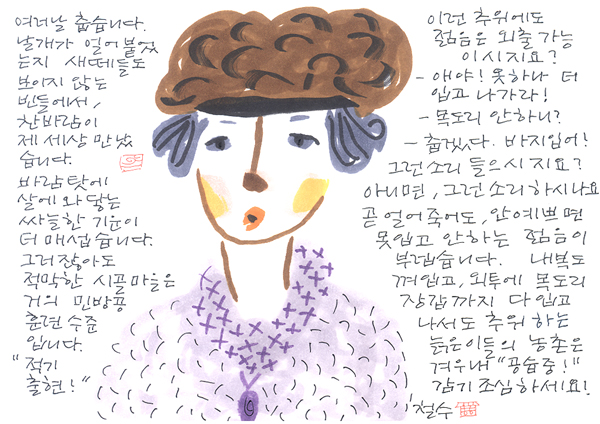 여러날 춥습니다.
날개가 얼어붙었
는지 새떼들도
보이지 않는
빈들에서,
찬바람이
제 세상 만났
습니다.
바람탓에
살에 와 닿는
싸늘한 기운이
더 매섭습니다.
그러잖아도
적막한 시골마을은
거의 민방공
훈련 수준
입니다.
"적기
출현!"
이런 추위에도
젊음은 외출 가능
이시지요?
- 얘야! 옷하나 더
입고 나가라!
- 목도리 안하니?
- 춥겠다. 바지입어!
그런소리 들으시지요?
아니면, 그런소리하시나요
곧 얼어죽어도, 안예쁘면
못입고 안하는 젊음이
부럽습니다. 내복도
껴입고, 외투에 목도리
장갑까지 다 입고
나서도 추워 하는
늙은이들의 농촌은
겨우내 "공습중!"
감기 조심하세요!
철수